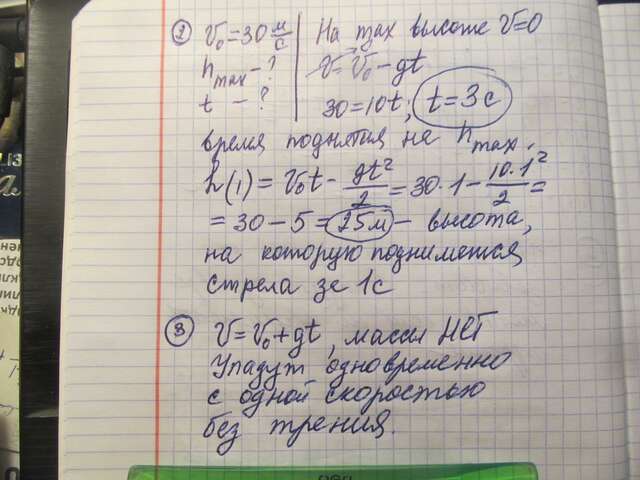 2) V₀ = 30 м/с | На max высоте V=0
h max - ? V = V₀ - gt
t - ? 30 = 10t; t = 3c
время поднятия на h max.
h(1) = V₀t - gt²/2 = 30·1 - 10·1²/2 =
= 30 - 5 = 25м - высота,
на которую поднимется
стрела за 1с
3) V = V₀ + gt, массы НЕТ
Упадут одновременно
с одной скоростью
без трения.